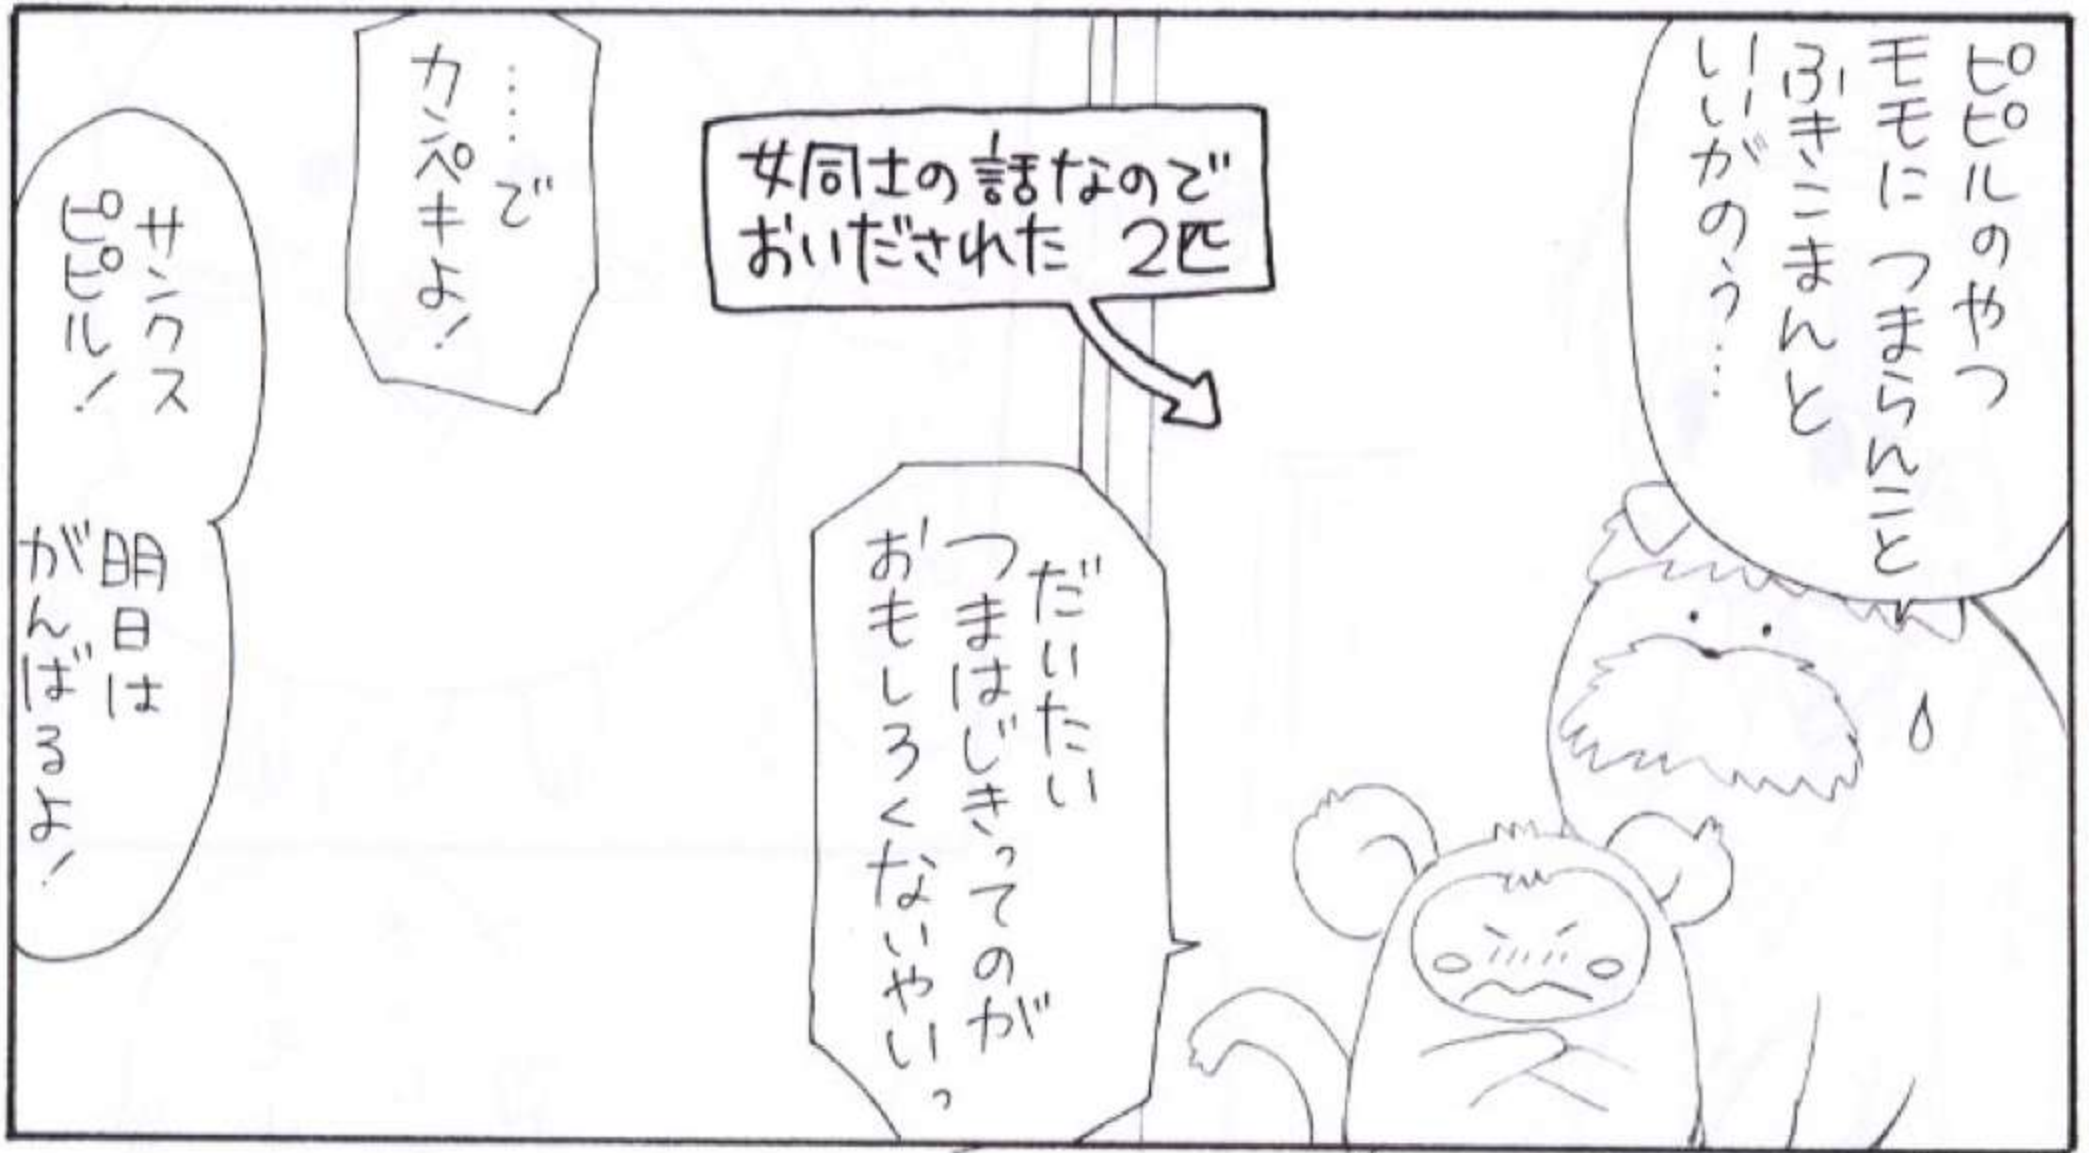 ピピルのやつ
モモに つまらんこと
ふきこまんと
いいがのう…
女同士の話なので
おいだされた 2匹
だいたい
つまはじきってのが
おもしろくないやいっ
……で
カンペキよ!
サンクス
ピピル!
明日は
がんばるよ!